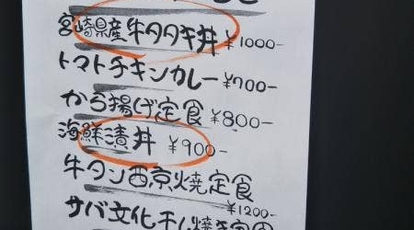 宮崎県産牛タタキ丼 ¥1000-
トマトチキンカレー ¥700-
から揚げ定食 ¥800-
海鮮漬丼 ¥900-
牛タン西京焼定食
¥1200-
サバ文化干し焼き定食